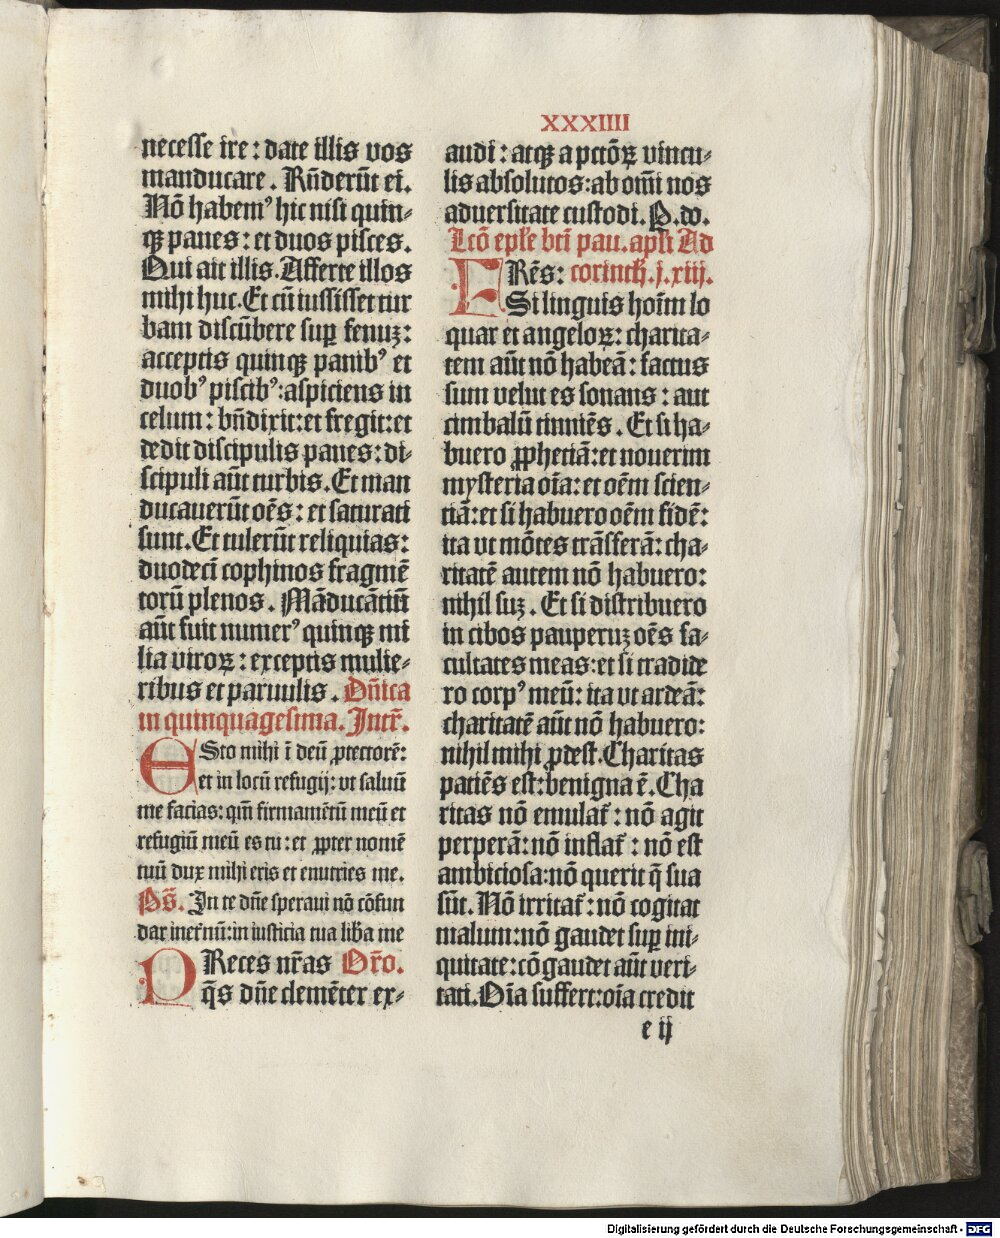 XXXIIII
necesse ire: date illis vos
manducare. Rñderũt ei.
Nō habem⁹ hic nisi quin-
qꝫ panes: et duos pisces.
Qui ait illis. Afferte illos
mihi huc. Et cũ iussisset tur
bam discũbere sup̱ fenuꝫ:
acceptis quinqꝫ panib⁹ et
duob⁹ piscib⁹: aspiciens in
celum: bñdixit: et fregit: et
dedit discipulis panes: di-
scipuli aũt turbis. Et man
ducauerũt oēs: et saturati
sunt. Et tulerũt reliquias:
duodecī cophinos fragmē
torũ plenos. Mãducãtiũ
aũt fuit numer⁹ quinqꝫ mi
lia viroꝝ: exceptis mulie-
ribus et paruulis. Dñica
in quinquagesima. Intr̃.
ESto mihi ī deũ ꝓtectorē:
et in locũ refugij: vt saluũ
me facias: qm̃ firmamētũ meũ et
refugiũ meũ es tu: et ꝓpter nomē
tuũ dux mihi eris et enutries me.
Ps̃. In te dñe speraui nō cōfun
dar inet̃nũ: in iusticia tua lib̃a me
PReces nr̃as Or̃o.
q̃s dñe clemēter ex-
audi: atqꝫ a pctōꝝ vincu-
lis absolutos: ab om̃i nos
aduersitate custodi. P. do.
Lcō ep̃le bti pau. apl̃i Ad
FRēs: corinth. j. xiij.
Si linguis hoīm lo
quar et angeloꝝ: charita-
tem aũt nō habeã: factus
sum velut es sonans: aut
cimbalũ tinniēs. Et si ha-
buero ꝓphetiã: et nouerim
mysteria oīa: et oēm scien-
tiã: et si habuero oēm fidē:
ita vt mōtes trãsferã: cha-
ritatē autem nō habuero:
nihil suꝫ. Et si distribuero
in cibos pauperuꝫ oēs fa-
cultates meas: et si tradide
ro corp⁹ meũ: ita vt ardeã:
charitatē aũt nō habuero:
nihil mihi ꝓdest. Charitas
patiēs est: benigna ē. Cha
ritas nō emulat̃: nō agit
perperã: nō inflat̃: nō est
ambiciosa: nō querit q̃ sua
sũt. Nō irritat̃: nō cogitat
malum: nō gaudet sup̱ ini-
quitate: cōgaudet aũt veri-
tati. Oīa suffert: oīa credit
e ij
Digitalisierung gefördert durch die Deutsche Forschungsgemeinschaft - DFG